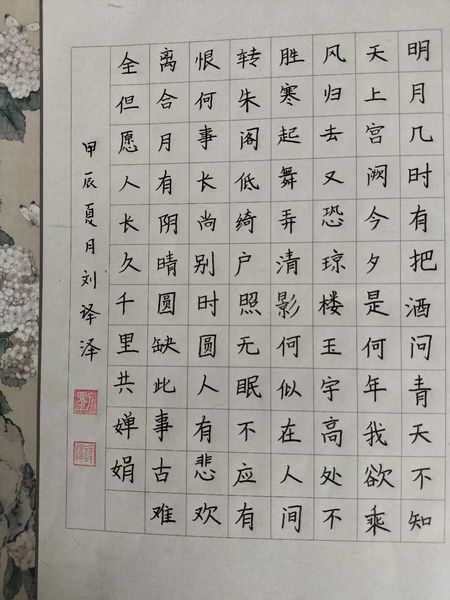 明月几时有把酒问青天不知
天上宫阙今夕是何年我欲乘
风归去又恐琼楼玉宇高处不
胜寒起舞弄清影何似在人间
转朱阁低绮户照无眠不应有
恨何事长尚别时圆人有悲欢
离合月有阴晴圆缺此事古难
全但愿人长久千里共婵娟
甲辰夏月刘译泽